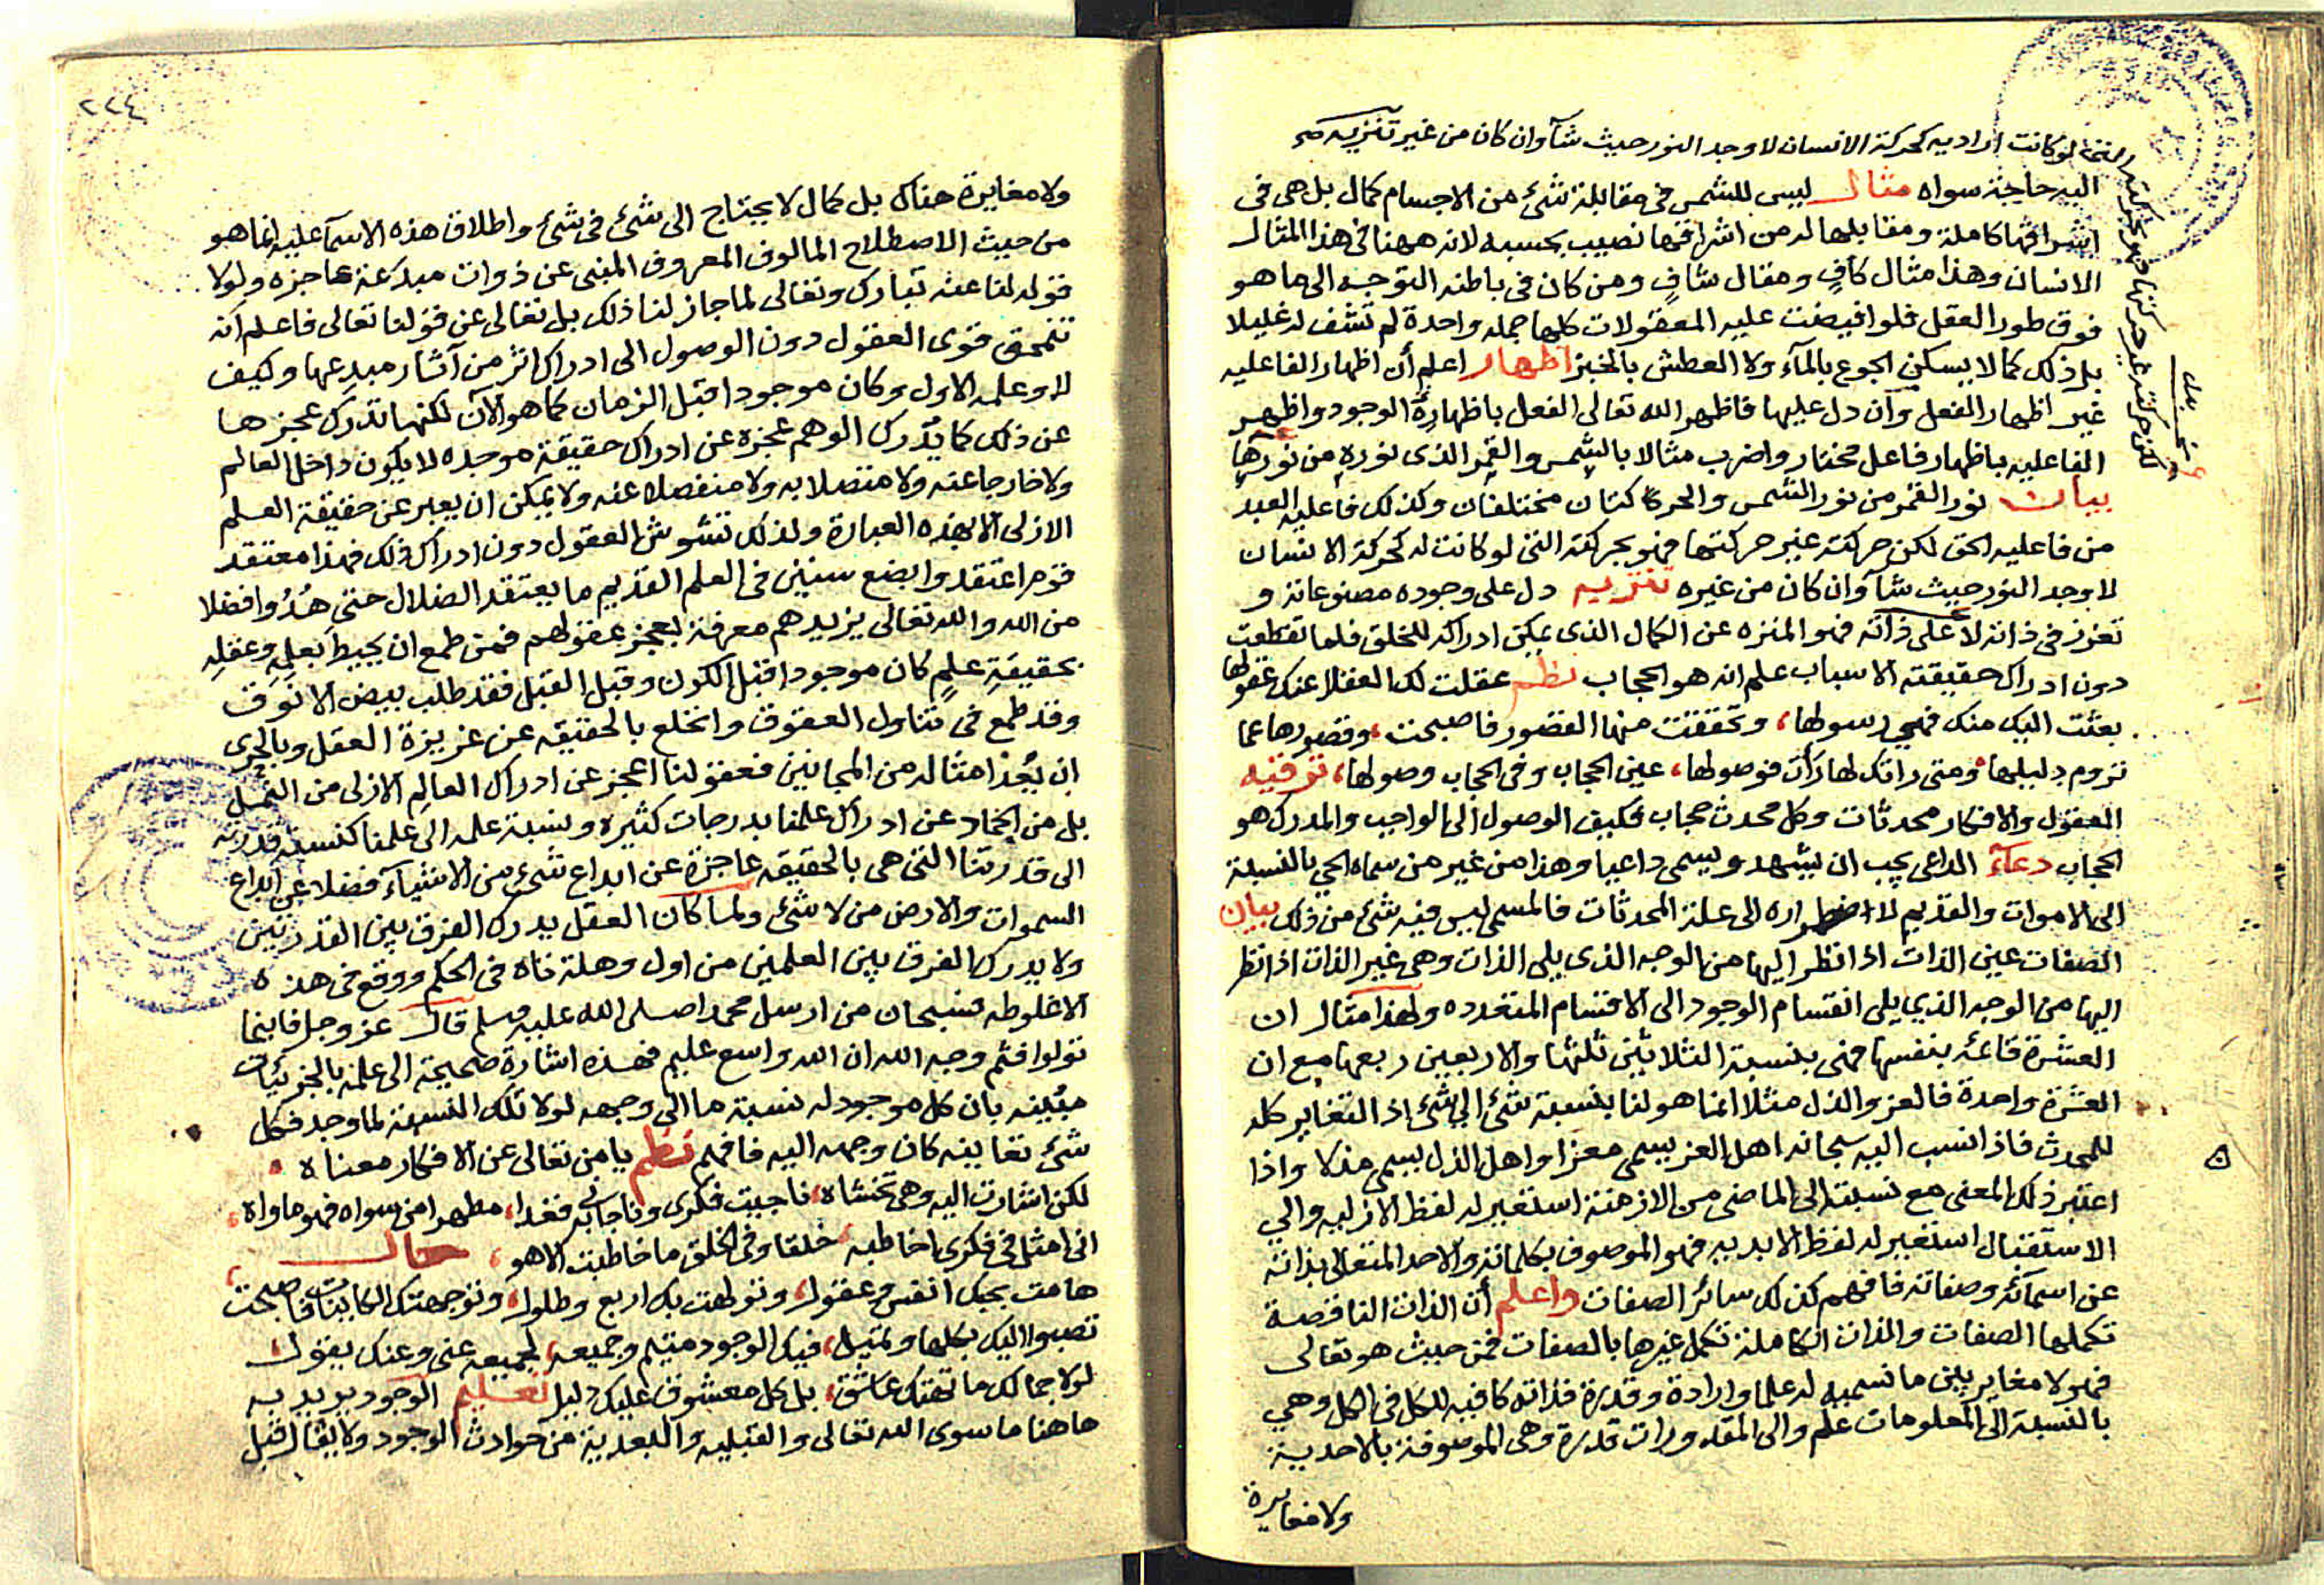 التى لو كانت اراديه كحركة الانسان لاوجد النور حيث شآ وان كان من غير تنزيه صح
اليه حاجة سواه مثال ليس للشمس فى مقابلة شئ من الاجسام كمال بل هى فى
اشراقها كاملة ومقابلها له من اشراقها نصيب بحسبه لانه ههنا فى هذا المثال
الانسان وهذا مثال كافٍ ومقال شافٍ ومن كان فى باطنه التوجه الى ما هو
فوق طور العقل فلو افيضت عليه المعقولات كلها جمله واحدة لم تشف له غليلا
بل ذلك كما لا يسكن الجوع بالمآء ولا العطش بالخبز اظهار اعلم أن اظهار الفاعليه
غير اظهار الفعل وآن دل عليها فاظهر الله تعالى الفعل باظهاره الوجود واظهر
الفاعليه باظهار فاعل مختار واضرب مثالا بالشمس والقمر الذى نوره من نورها
بيان نور القمر من نور الشمس والحركتان مختلفتان وكذلك فاعليه العبد
من فاعليه الحق لكن حركته غير حركتها فهو بحركته التى لو كانت له كحركة الانسان
لاوجد النور حيث شآ وان كان من غيره تنزيه دل على وجوده مصنوعاته و
تعزز فى ذاته لا على ذاته فهو المنزه عن الكمال الذى يمكن ادراكه للخلق فلما تقطعت
دون ادراك حقيقته الاسباب علم انه هو الحجاب نظم عقلت لك العقلا عنك عقولها
بعثت اليك منك فهى رسولها، وتحققت منها القصور فاصبحت، وقصورها عما
تروم دليلها، ومتى راتك لها رأت فوصولها، عين الحجاب وفى الحجاب وصولها،
العقول والافكار محدثات وكل محدث حجاب فكيف الوصول الى الواجب والمدرك هو
الحجاب دعآء الداعى يجب ان يشهد ويسمى داعيا وهذا من غير من سماه الحي بالنسبة
الى الاموات والقديم لاضطراره الى علة المحدثات فالمسمى ليس فيه شئ من ذلك بيان
الصفات عين الذات اذا نظر اليها من الوجه الذى يلى الذات وهى غير الذات اذا نظر
اليها من الوجه الذي يلى انقسام الوجود الى الاقسام المتعدده ولهذا مثال ان
العشرة قائمه بنفسها فهى بنسبة الثلاثين ثلثها والاربعين ربعها مع ان
العشرة واحدة فالعز والذل مثلا انما هو لنا بنسبة شئ الى شئ اذ التغاير كله
للمحدث فاذا نسب اليه سبحانه اهل العز يسمى معزا واهل الذل يسمى مذلا واذا
اعتبر ذلك المعنى مع نسبته الى الماضى من الازمنة استعير له لفظ الازليه والي
الاستقبال استعير له لفظ الابديه فهو الموصوف بكلماته والاحد المتعالى بذاته
عن اسمآئه وصفاته فافهم كذلك سائر الصفات واعلم أن الذات الناقصة
تكملها الصفات والذات الكاملة تكمل غيرها بالصفات فمن حيث هو تعالى
فهو لا مغاير بين ما نسميه له علما وارادة وقدرة فذاته كافيه للكل فى الكل وهي
بالنسبة الى المعلومات علم والى المقدورات قدرة وهى الموصوفة بالاحدية
ولا مغايرة
فهو بحركته غير حركتها
لكن حركته
بدل
٢٢٤
ولا مغايرة هناك بل كمال لا يحتاج الى شئ فى شئ واطلاق هذه الاسمآ عليه انما هو
من حيث الاصطلاح المالوف المعروف المنبى عن ذوات مبدعة عاجزه ولولا
قوله لنا عنه تبارك وتعالى لما جاز لنا ذلك بل تعالى عن قولنا تعالى فاعلم انه
تنمحق قوى العقول دون الوصول الى ادراك اثر من آثار مبدعها وكيف
لا وعلمه الاول وكان موجودا قبل الزمان كما هو الآن لكنها تدرك عجزها
عن ذلك كما يدرك الوهم عجزه عن ادراك حقيقة موجده لا يكون داخل العالم
ولا خارجا عنه ولا متصلا به ولا منفصلا عنه ولا يمكن ان يعبر عن حقيقة العلم
الازلى الا بهذه العبارة ولذلك تشوش العقول دون ادراك ذلك فهذا معتقد
قوم اعتقدوا بضع سنين فى العلم القديم ما يعتقد الضلال حتى هُدُوا فضلا
من الله والله تعالى يزيدهم معرفة بعجز عقولهم فمن طمع ان يحيط بعلمِهِ وعقلِهِ
بحقيقةِ علمٍ كان موجودا قبل الكون وقبل القبل فقد طلب بيض الانوق
وقد طمع فى تناول العقوق وانخلع بالحقيقه عن غريزة العقل وبالحرى
ان يُعدّ امثاله من المجانين فعقولنا اعجز عن ادراك العالِم الازلى من النمل
بل من الجماد عن ادراك علمنا بدرجات كثيره ونسبة علمه الى علمنا كنسبة قدرته
الى قدرتنا التى هى بالحقيقه عاجزة عن ابداع شئ من الاشيآء فضلا عن ابداع
السموات والارض من لا شئ ولما كان العقل يدرك الفرق بين القدرتين
ولا يدرك الفرق بين العلمين من اول وهلة تاه فى الحكم ووقع فى هذه
الاغلوطه فسبحان من ارسل محمدا صلى الله عليه وسلم قال عز وجل فاينما
تولوا فثم وجه الله ان الله واسع عليم فهذه اشارة صحيحة الى علمه بالجزئيات
مبيّنه بان كل موجود له نسبة ما الى وجهه لولا تلك النسبة لما وجد فكل
شئ تعاينه كان وجهه اليه فافهم نظم يا من تعالى عن الافكار معناه
لكن اشارت اليه وهى تخشاه، ناجيت فكرى وناجانى به فغدا، مطهرا من سواه فهو ماواه،
انى امثل فى فكرى اخاطبه، خلقا وفى الخلق ما خاطبت الا هو، حال
هامت بحبك انفس وعقول، وتولهت بك اربع وطلول، وتوجهتك الكاينات فاصبحت،
تصبوا اليك بكلها وتميل، فبك الوجود متيم وجميعه، لجميعه عنى وعنك يقول
لولا جمالك ما تهتك عاشق، بل كل معشوق عليك دليل تعليم الوجود يريد به
هاهنا ما سوى الله تعالى والقبليه والبعدية من حوادث الوجود ولا يقال قبل